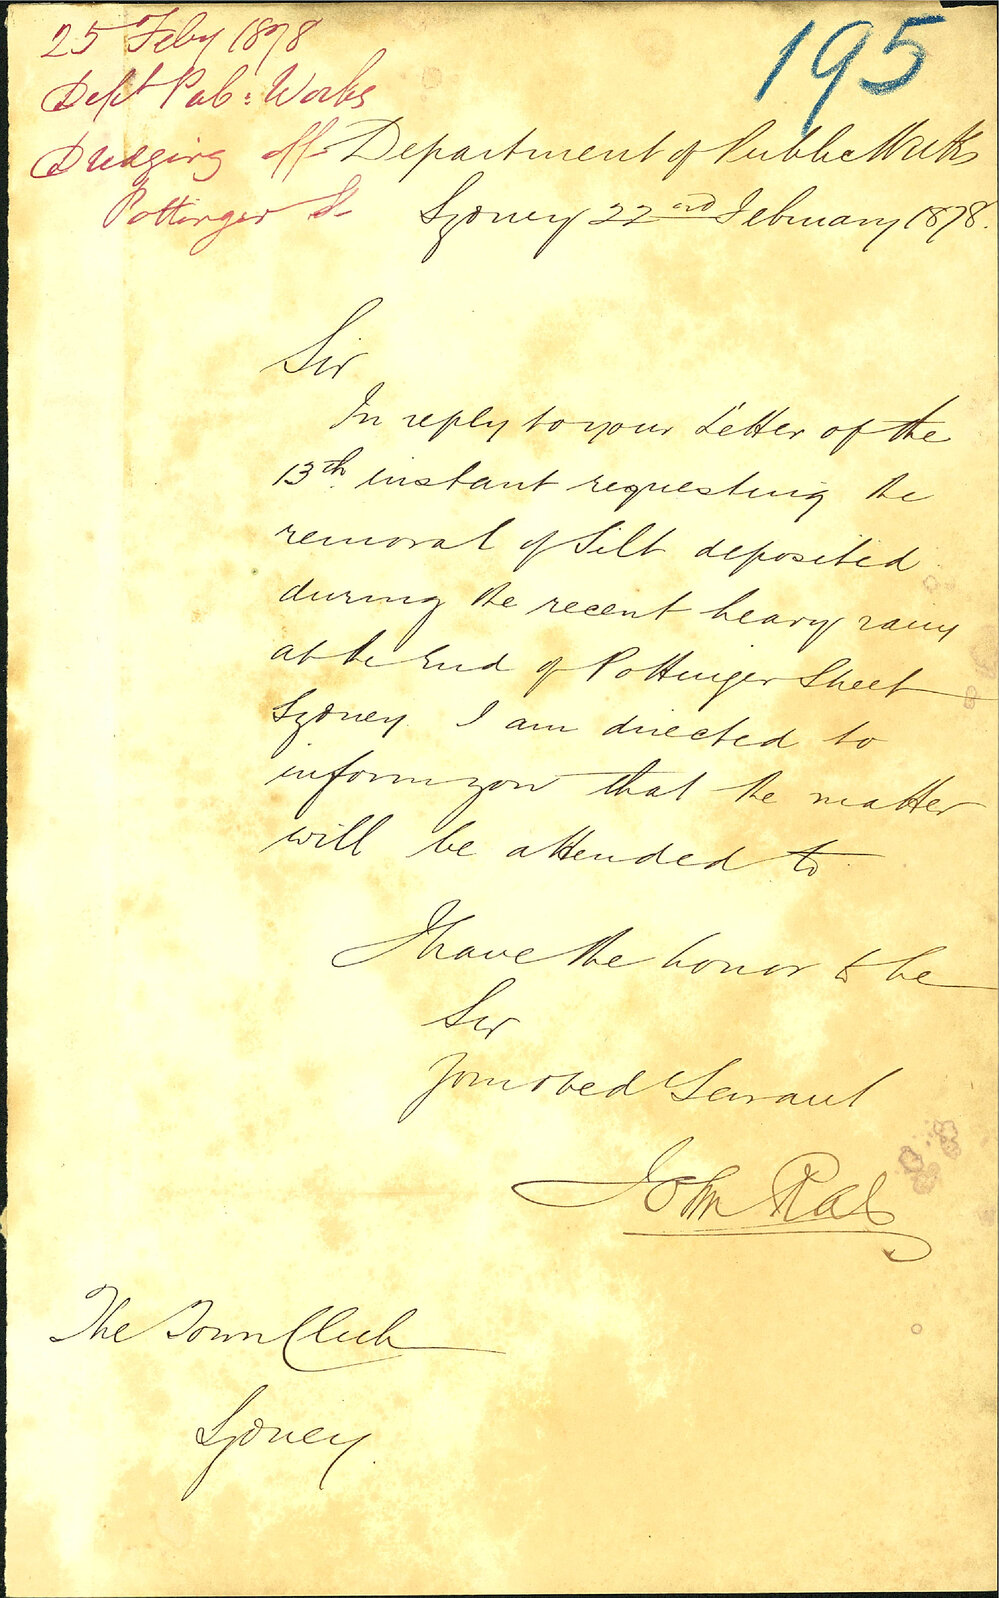 25 Feby 1878
Dept Pub: Works
Dredging off
Pottinger St
195
Department of Public Works
Sydney 22nd February 1878.
Sir
In reply to your Letter of the
13th instant requesting the
removal of Silt deposited
during the recent heavy rain
at the End of Pottinger Street
Sydney. I am directed to
inform you that the matter
will be attended to.
I have the honor to be
Sir
Your obed Servant
John Rae
The Town Clerk
Sydney.